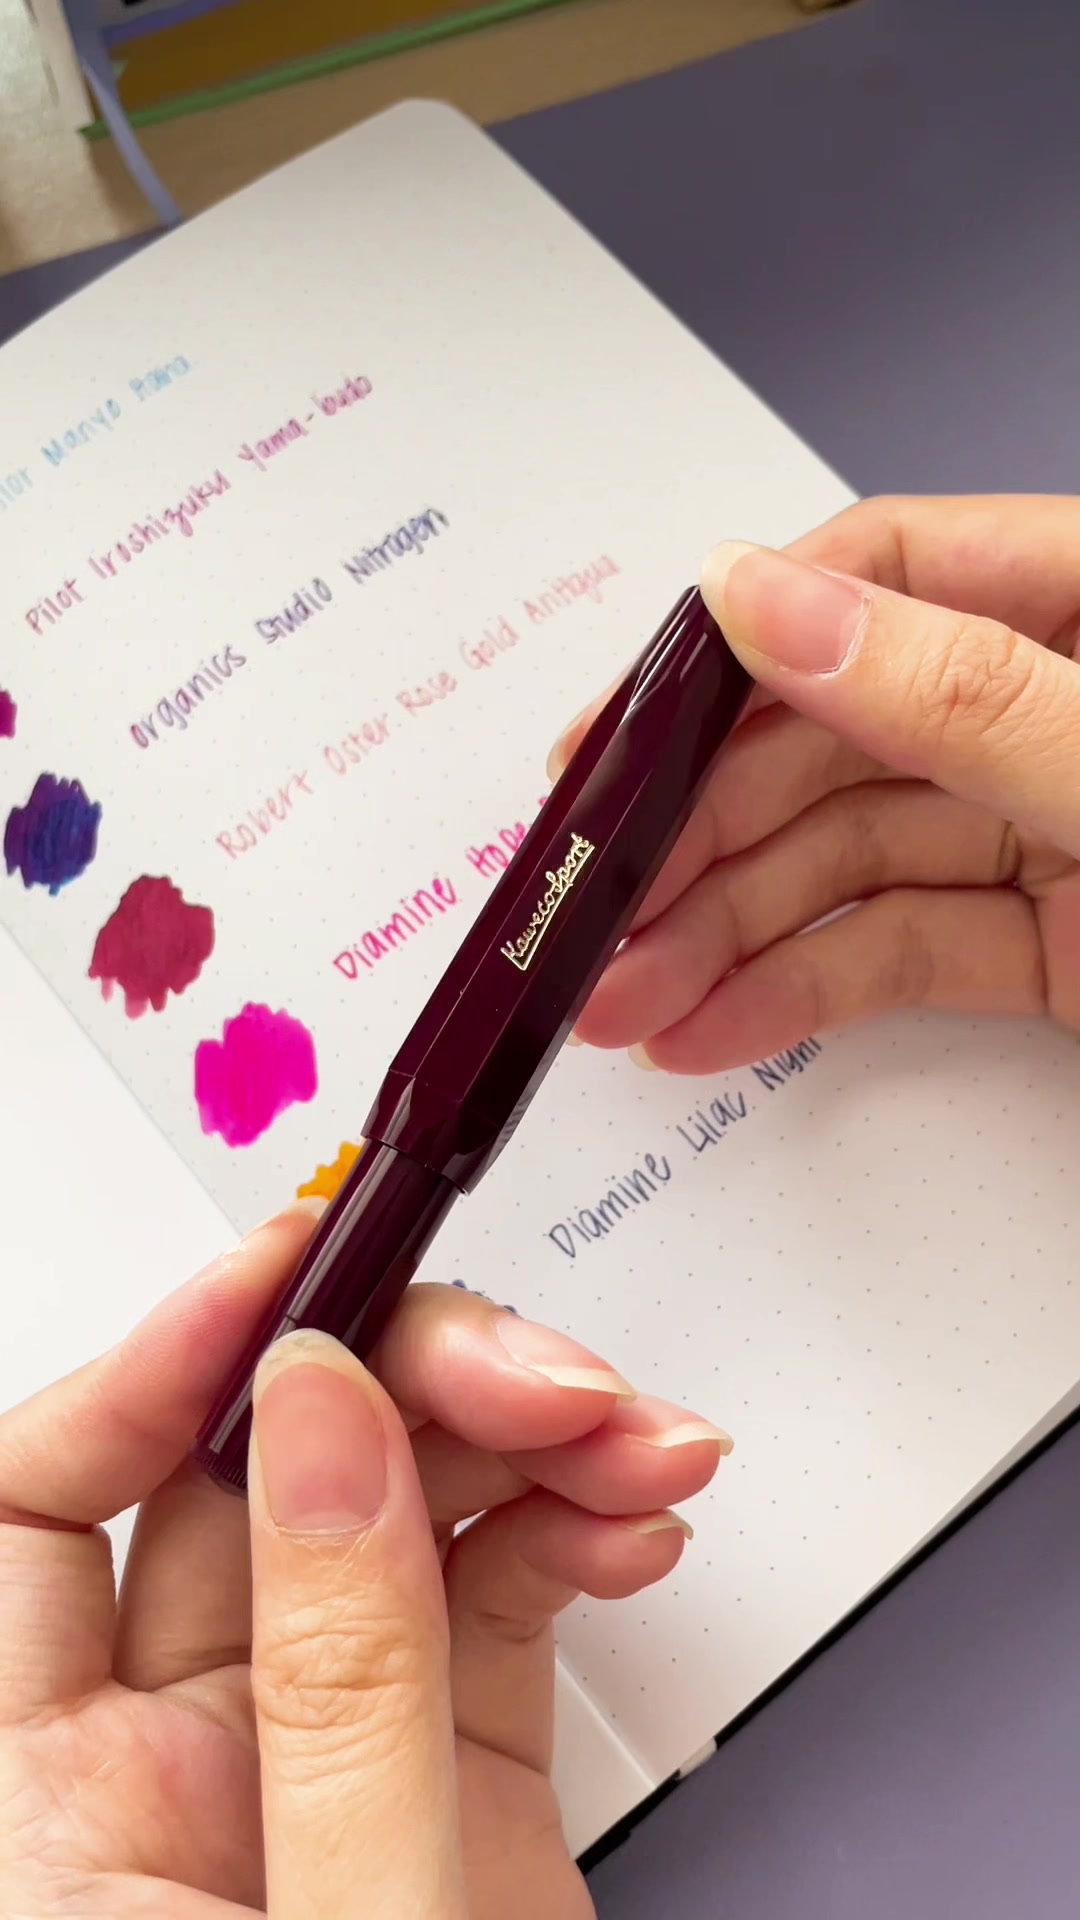 Manyo
Pilot Iroshizuku Yama-budo
Organics Studio Nitrogen
Robert Oster Rose Gold Antiqua
Diamine Hope
KawecoSport
Diamine Lilac Night